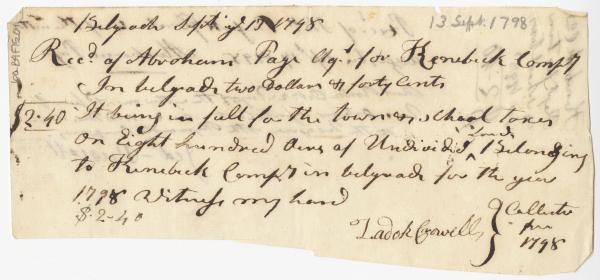 Belgrade Sept ye 13 1798
13 Sept. 1798
Recd of Abraham Page Agt for Kenebeck Compy
In belgrade two Dollars & forty Cents
$2.40 It being in full for the town & school taxes
on Eight hundred acres of Undivided Land Belonging
to Kenebeck Compy in belgrade for the year
1798 Witness my hand
$.2-40
Zadok Crowell } Collector
for
1798